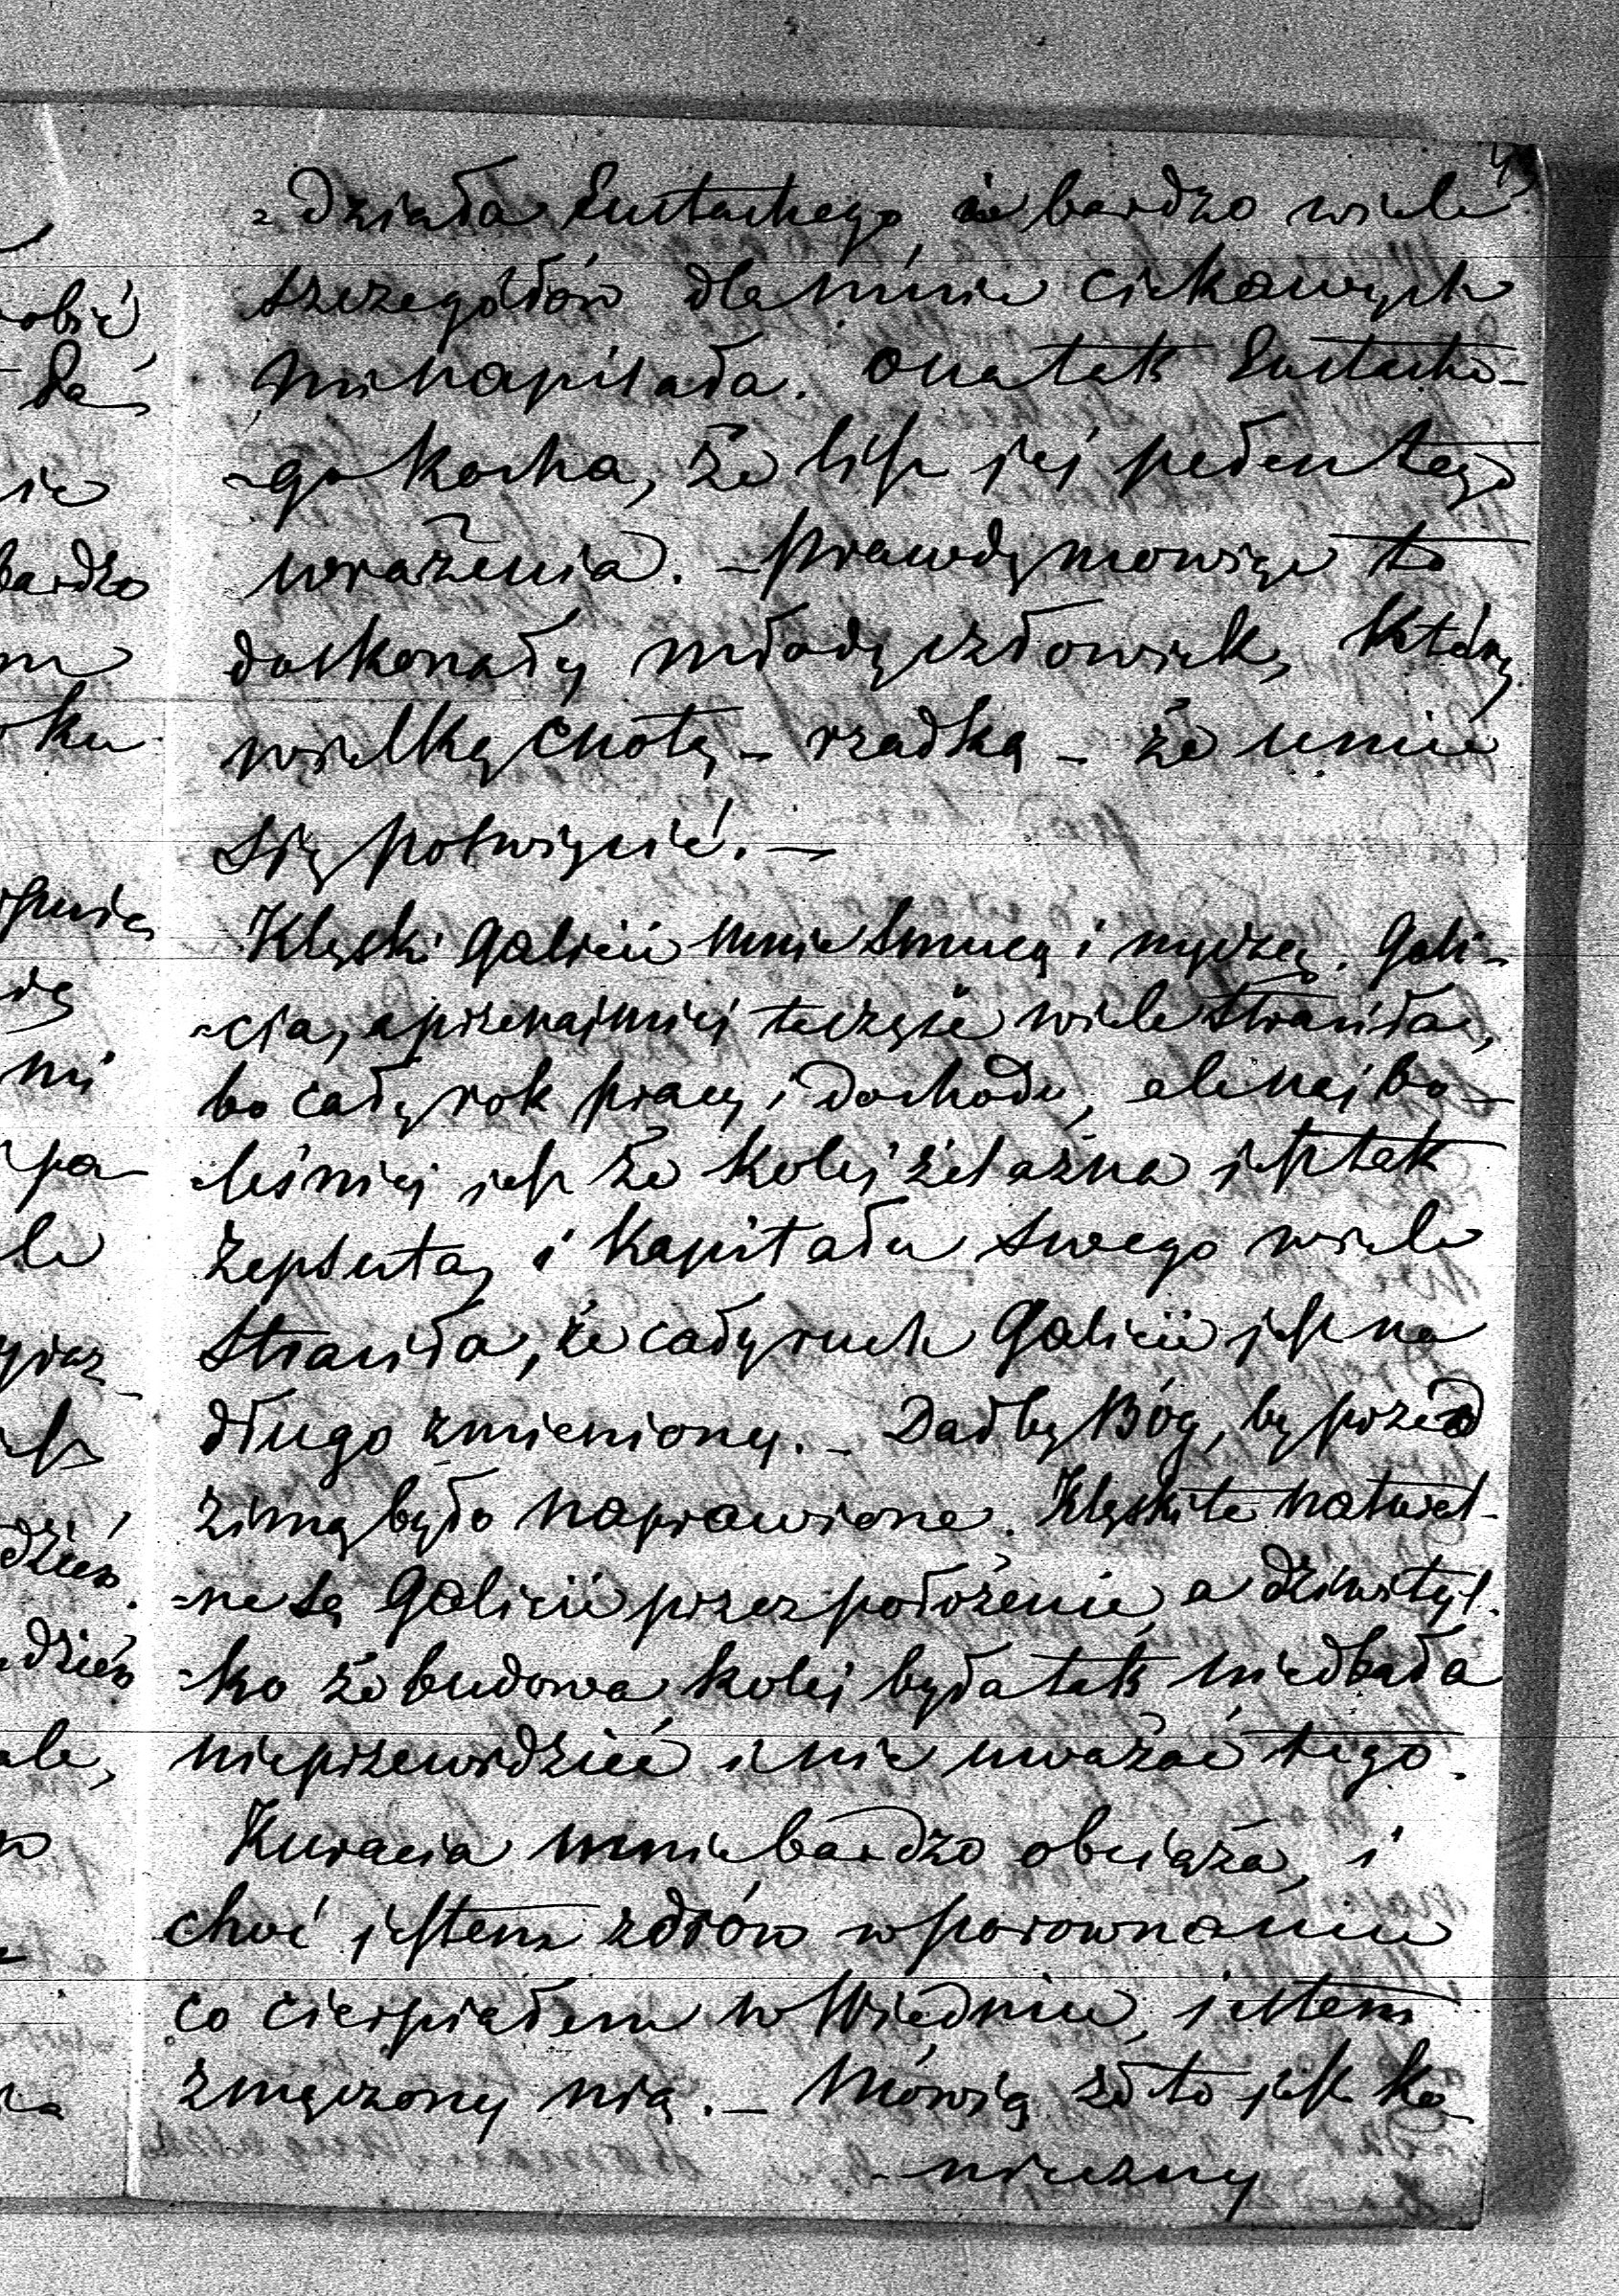 -działa Eustachego i bardzo wiele
szczegółów dla mnie ciekawych
mi napisała. Ona tak Eustache-
-go kocha, że list jej pełen tego
wrażenia. – prawdę mowiąc to
doskonały młody człowiek, który
wielką cnotę – rzadką – że umie
się poświęcić. –
Klęski Galicii mnie smucą i męczą. Gali-
-cia, a przenajmniej ta część wiele straciła,
bo cały rok pracy i dochodu, ale najbo-
-leśniej jest że kolej żelazna jest tak
zepsuta, i kapitału swego wiele
straciła, że cały ruch Galicii jest na
długo zmieniony. – Dałby Bóg, by przed
zimą było naprawione. Klęski te natural-
-ne są Galicii przez położenie, a dziwi tyl-
-ko że budowa kolej była tak niedbała
nieprzewidzieć i nie uważać tego.
Kuracia mnie bardzo obciąża, i
choć jestem zdrów w porownaniu
co cierpiałem w Wiedniu, jestem
zmęczony nią. – Mówią że to jest ko-
-nieczny